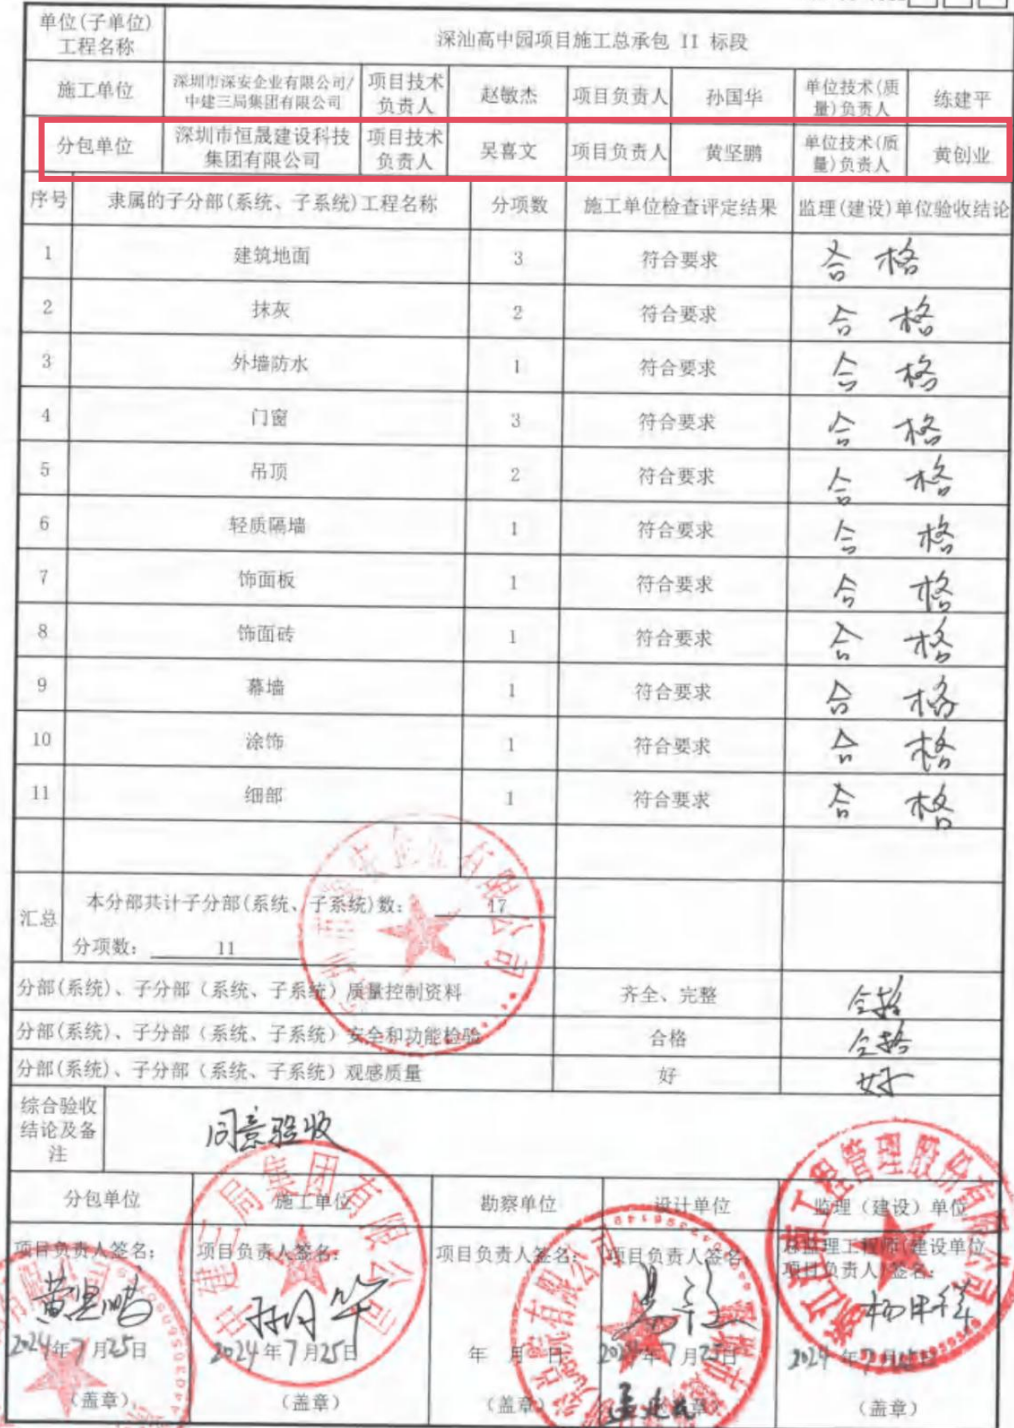 单位(子单位)
工程名称
深汕高中园项目施工总承包 II 标段
施工单位
深圳市深安企业有限公司/
中建三局集团有限公司
项目技术
负责人
赵敏杰
项目负责人
孙国华
单位技术(质
量)负责人
练建平
分包单位
深圳市恒晟建设科技
集团有限公司
项目技术
负责人
吴喜文
项目负责人
黄坚鹏
单位技术(质
量)负责人
黄创业
序号 隶属的子分部(系统、子系统)工程名称 分项数 施工单位检查评定结果 监理(建设)单位验收结论
1 建筑地面 3 符合要求 合格
2 抹灰 2 符合要求 合格
3 外墙防水 1 符合要求 合格
4 门窗 3 符合要求 合格
5 吊顶 2 符合要求 合格
6 轻质隔墙 1 符合要求 合格
7 饰面板 1 符合要求 合格
8 饰面砖 1 符合要求 合格
9 幕墙 1 符合要求 合格
10 涂饰 1 符合要求 合格
11 细部 1 符合要求 合格
汇总
本分部共计子分部(系统、子系统)数: 17
分项数: 11
分部(系统)、子分部（系统、子系统）质量控制资料 齐全、完整 合格
分部(系统)、子分部（系统、子系统）安全和功能检验 合格 合格
分部(系统)、子分部（系统、子系统）观感质量 好 好
综合验收
结论及备
注
同意验收
分包单位 施工单位 勘察单位 设计单位 监理（建设）单位
项目负责人签名: 项目负责人签名: 项目负责人签名: 项目负责人签名: 总监理工程师(建设单位
项目负责人)签名:
黄坚鹏
2024年7月25日 2024年7月25日 年 月 日 2024年7月25日 2024年7月
（盖章） （盖章） （盖章） （盖章）
中建三局集团有限公司
工程管理股份有限公司